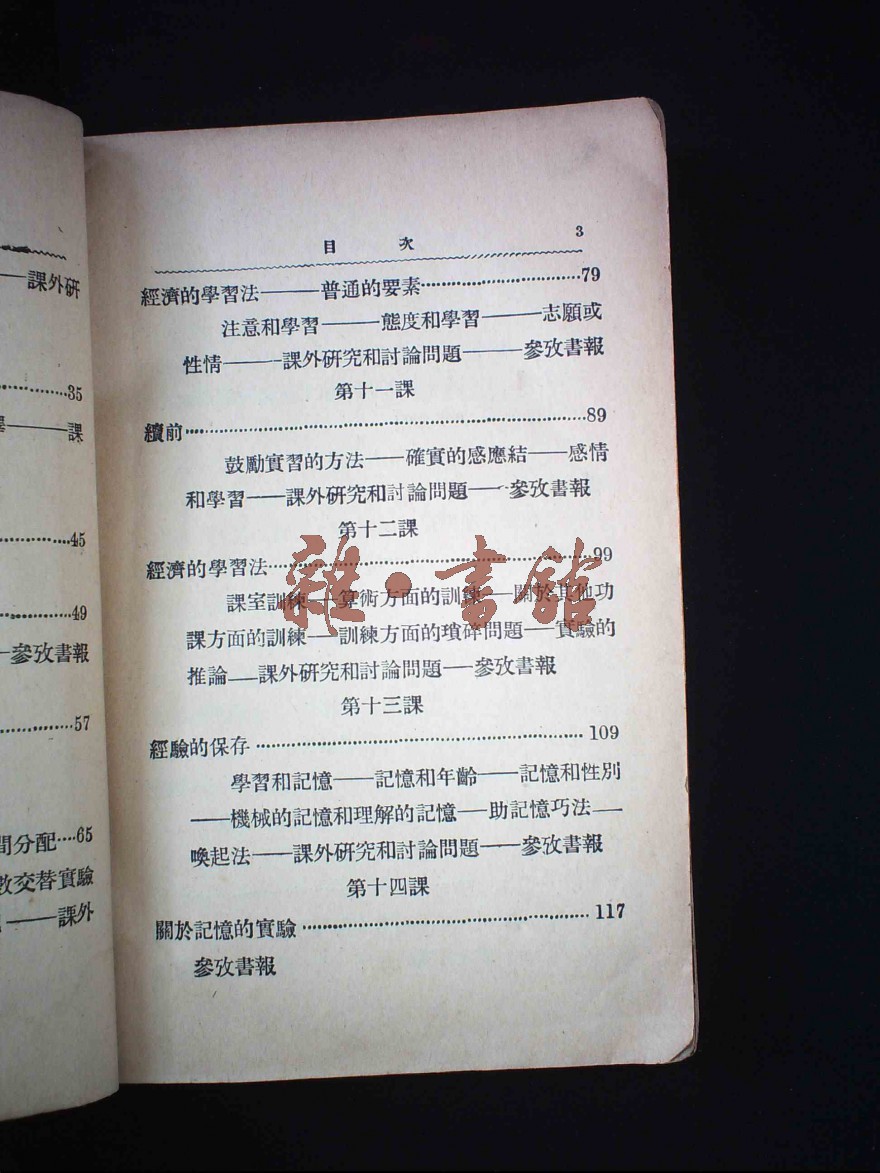 課外研
35
課
45
49
參攷書報
57
間分配····65
數交替實驗
——課外
目 次 3
經濟的學習法——普通的要素····························79
注意和學習——態度和學習——志願或
性情——課外研究和討論問題——參攷書報
第十一課
續前····························89
鼓勵實習的方法——確實的感應結——感情
和學習——課外研究和討論問題——參攷書報
第十二課
經濟的學習法····························99
課室訓練——算術方面的訓練——關於其他功
課方面的訓練——訓練方面的瑣碎問題——實驗的
推論——課外研究和討論問題——參攷書報
第十三課
經驗的保存····························109
學習和記憶——記憶和年齡——記憶和性別
——機械的記憶和理解的記憶——助記憶巧法——
喚起法——課外研究和討論問題——參攷書報
第十四課
關於記憶的實驗····························117
參攷書報
雜·書館